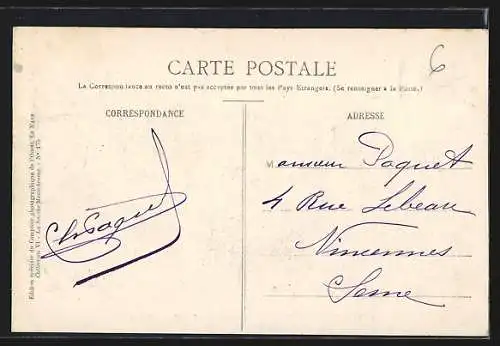 6
CARTE POSTALE
La Correspondance au recto n'est pas acceptée par tous les Pays Etrangers. (Se renseigner à la Poste.)
CORRESPONDANCE
ADRESSE
Ch Paquet
Monsieur Paquet
4 Rue Lebeau
Vincennes
Seine
Edition spéciale du Comptoir photographique de l'Ouest, Le Mans